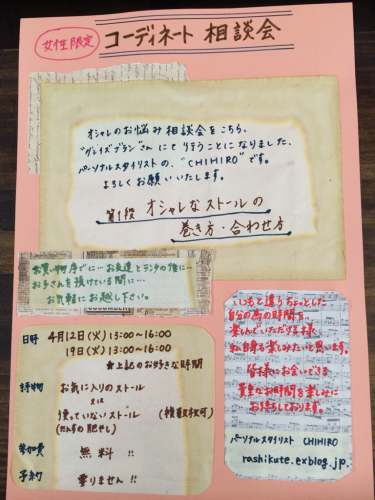 女性限定
コーディネート 相談会
オシャレのお悩み相談会をこちら、
"グレイズプラン"さん にて 行うことになりました、
パーソナルスタイリストの、"CHIHIRO"です。
よろしくお願いいたします。
第1段 オシャレなストールの
巻き方・合わせ方
お買い物序でに…お友達とランチの後に…
お子さんを預けている間に…
お気軽にお越し下さい。
日時 4月12日(火)13:00〜16:00
19日(火)13:00〜16:00
★上記のお好きな時間
持物 お気に入りのストール
又は
使っていないストール (複数枚可)
(たんすの肥やし)
参加費 無料!!
予約 要りません!!
いつもと違うちょっとした
自分の為の時間を、
楽しんでいただける様
私自身も楽しみたいと思います。
皆様にお会いできる
貴重なお時間を楽しみに
お待ちしております。
パーソナルスタイリスト CHIHIRO
rashikute.exblog.jp